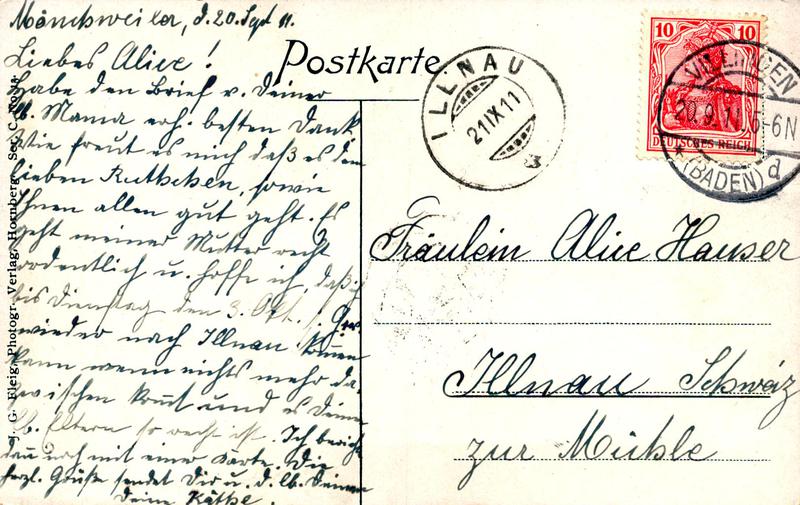 Mönchweiler, d. 20. Sept 11.
Liebes Alice!
Habe den Brief v. Deiner
lb. Mama erh. besten Dank
Wie freut es mich daß es dem
lieben Ruthchen, sowie
Ihnen allen gut geht. Es
geht meiner Mutter recht
ordentlich u. hoffe ich, daß ich
bis Dienstag den 3. Okt.
wieder nach Illnau kommen
kann wenn nichts mehr da-
zwischen kommt und es Deinen
lb. Eltern so recht ist. Ich berichte
dann noch mit einer Karte. Die
herzl. Grüße sendet Dir u. d. lb. Deinen
Deine Käthe.
J. G. Fleig, Photogr. Verlag, Hornberg. Ser. C. No.
Postkarte
ILLNAU
21.IX.11
10 10
DEUTSCHES REICH
VILLINGEN
20.9.11. 5-6N
*(BADEN) d
Fräulein Alice Hauser
Illnau Schweiz
zur Mühle